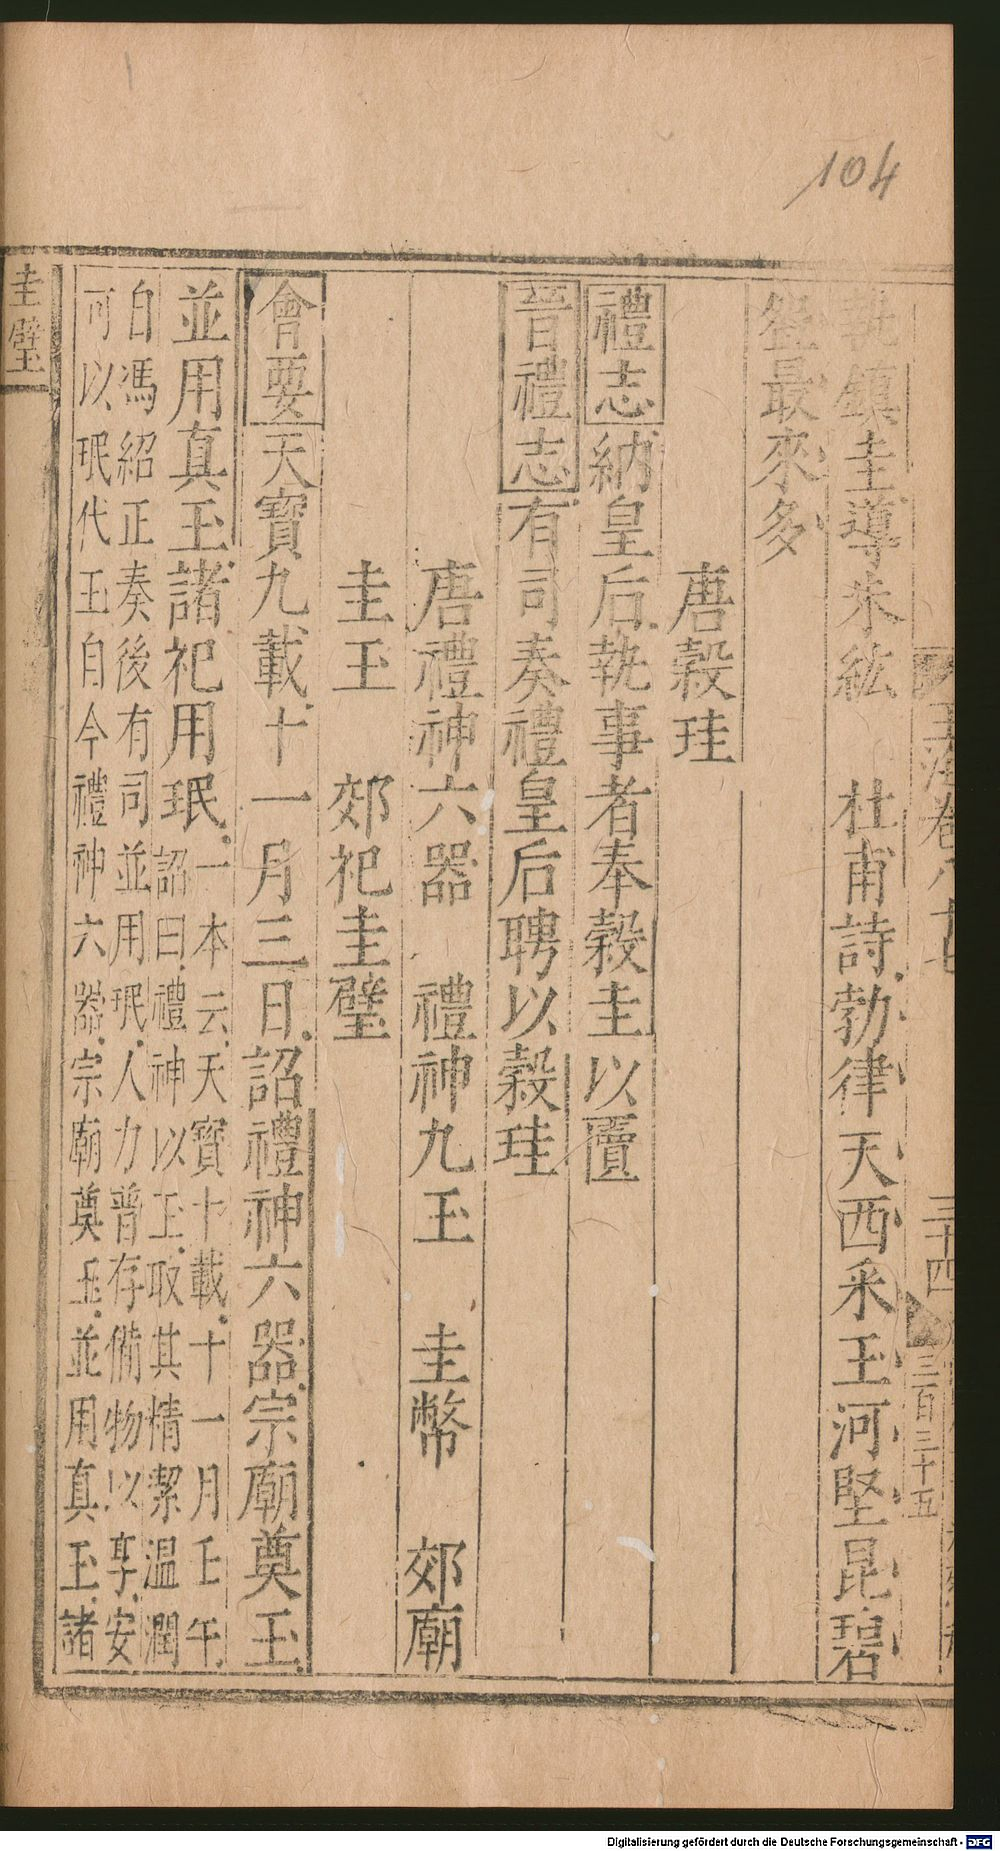 104
玉海卷八十七
三十四
三百三十五
執鎮圭導朱紘　杜甫詩勃律天西采玉河堅昆碧
盌最來多
唐穀珪
禮志納皇后執事者奉穀圭以匵
晉禮志有司奏禮皇后聘以穀珪
唐禮神六器　禮神九玉　圭幣　郊廟
圭玉　郊祀圭璧
會要天寶九載十一月三日詔禮神六器宗廟奠玉
並用真玉諸祀用珉
一本云天寶十載十一月壬午
詔曰禮神以玉取其精潔温潤
自馮紹正奏後有司並用珉人力普存備物以享安
可以珉代玉自今禮神六器宗廟奠玉並用真玉諸
圭璧
Digitalisierung gefördert durch die Deutsche Forschungsgemeinschaft - DFG